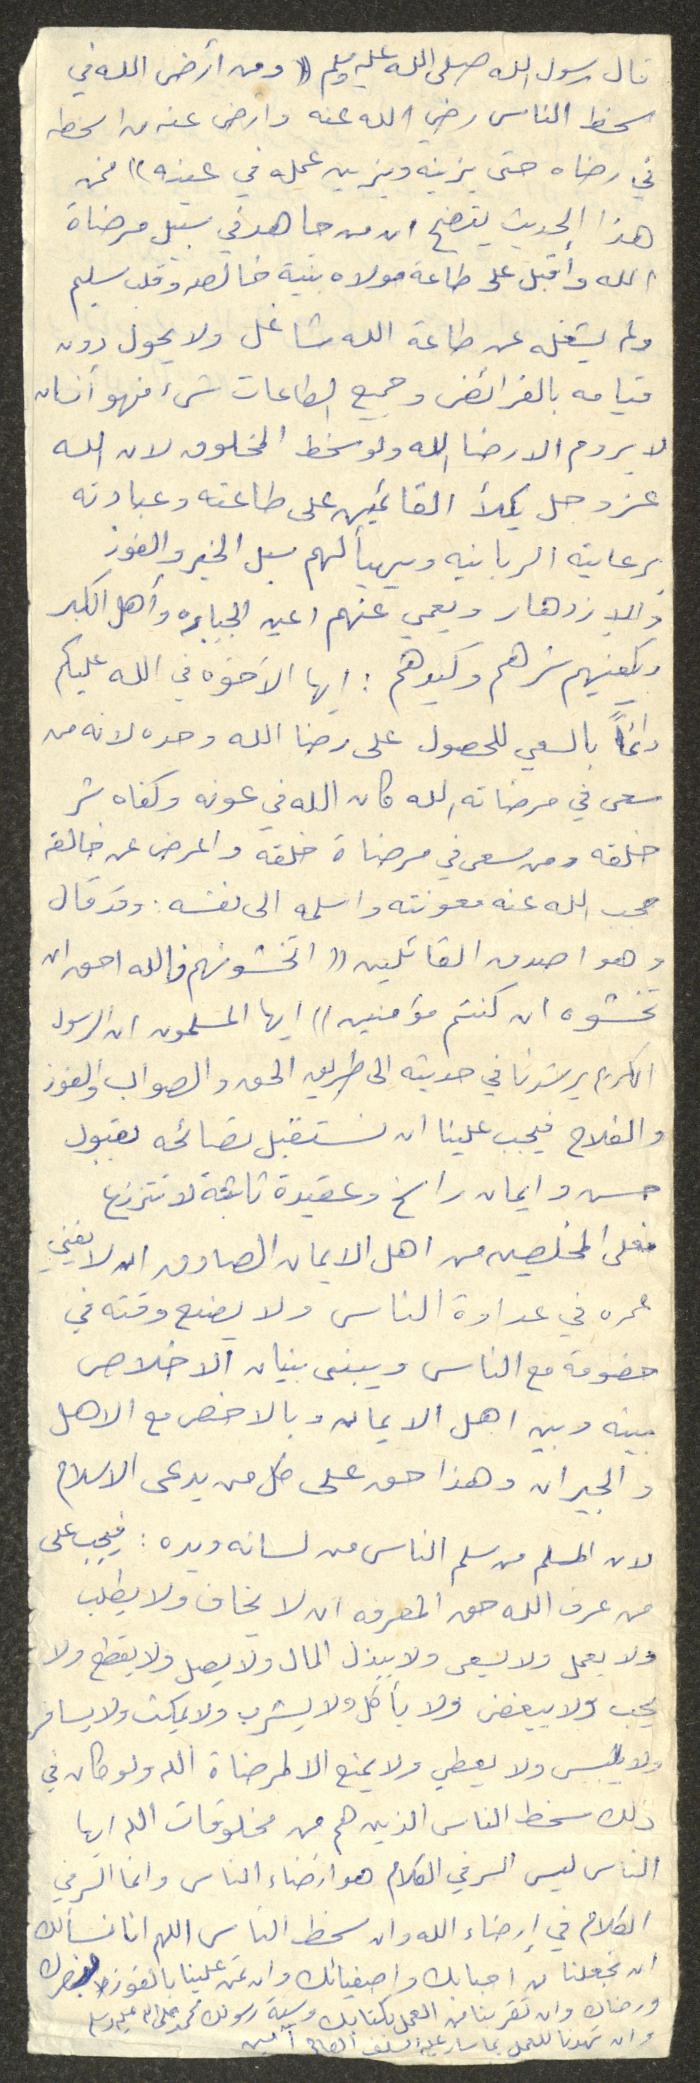 قال رسول الله صلى الله عليه وسلم (( ومن أرضى الله في
سخط الناس رضي الله عنه وارضى عنه من اسخطه
في رضاه حتى يزينه ويزين عمله في عينه )) فمن
هذا الحديث يتضح ان من جاهد في سبيل مرضاة
الله وأقبل على طاعة مولاه بنية خالصه وقلب سليم
ولم يشغله عن طاعة الله شاغل ولا يحول دون
قيامه بالفرائض وجميع الطاعات شيء فهو أنسان
لا يروم الا رضا الله ولو سخط المخلوق لان الله
عز وجل يكلأ القائمين على طاعته وعبادته
برعايته الربانيه ويهيأ لهم سبل الخير والفوز
والازدهار ويعمي عنهم اعين الجبابره وأهل الكبر
ويكفيهم شرهم وكيدهم : ايها الأخوه في الله عليكم
دائماً بالسعي للحصول على رضا الله وحده لانه من
سعى في مرضاته الله كان الله في عونه وكفاه شر
خلقه ومن سعى في مرضاة خلقه واعرض عن خالقه
حجب الله عنه معونته واسلمه الى نفسه . وقد قال
وهو اصدق القائلين (( اتخشونهم فالله احق ان
تخشوه ان كنتم مؤمنين )) ايها المسلمون ان الرسول
الكريم يرشدنا في حديثه الى طريق الحق والصواب والفوز
والفلاح فيجب علينا ان نستقبل نصائحه بقبول
حسن وايمان راسخ وعقيدة ثابتة لا تتزعزع
فعلى المخلصين من اهل الايمان الصادق ان لا يفني
عمره في عداوة الناس ولا يضيع وقته في
خصومة مع الناس ويبنى بنيان الاخلاص
بينه وبين اهل الايمان وبالاخص مع الاهل
والجيران وهذا حق على كل من يدعى الاسلام
لان المسلم من سلم الناس من لسانه ويده : فيجب على
من عرف الله حق المعرفه ان لا يخاف ولا يطلب
ولا يعمل ولا يسعى ولا يبذل المال ولا يصل ولا يقطع ولا
يحب ولا يبغض ولا يأكل ولا يشرب ولا يمكث ولا يسافر
ولا يلبس ولا يعطي ولا يمنع الا لمرضاة الله ولو كان في
ذلك سخط الناس الذين هم من مخلوقات الله ايها
الناس ليس السر في الكلام هو ارضاء الناس وانما السر في
الكلام في إرضاء الله وان سخط الناس اللهم انا نسألك
ان تجعلنا من احبابك واصفيائك وان تمن علينا بالفوز
ورضاك وان تقربنا من العمل بكتابك وسنة رسولك محمد صلى الله عليه وسلم
وان تهدنا للعمل بما سار عليه السلف الصالح آمين